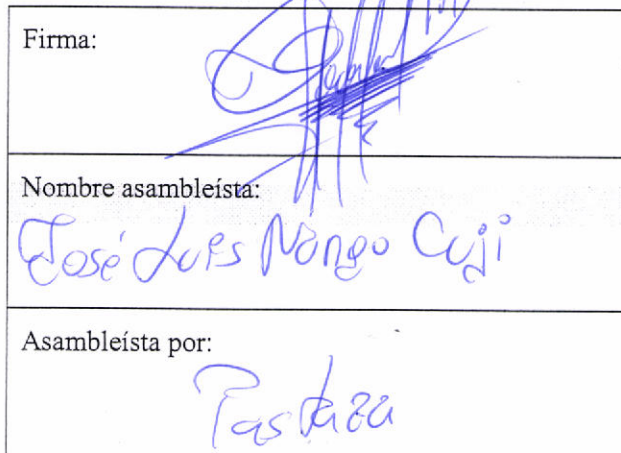 Firma:
Nombre asambleísta:
José Luis Nango Cuji
Asambleísta por:
Pastaza